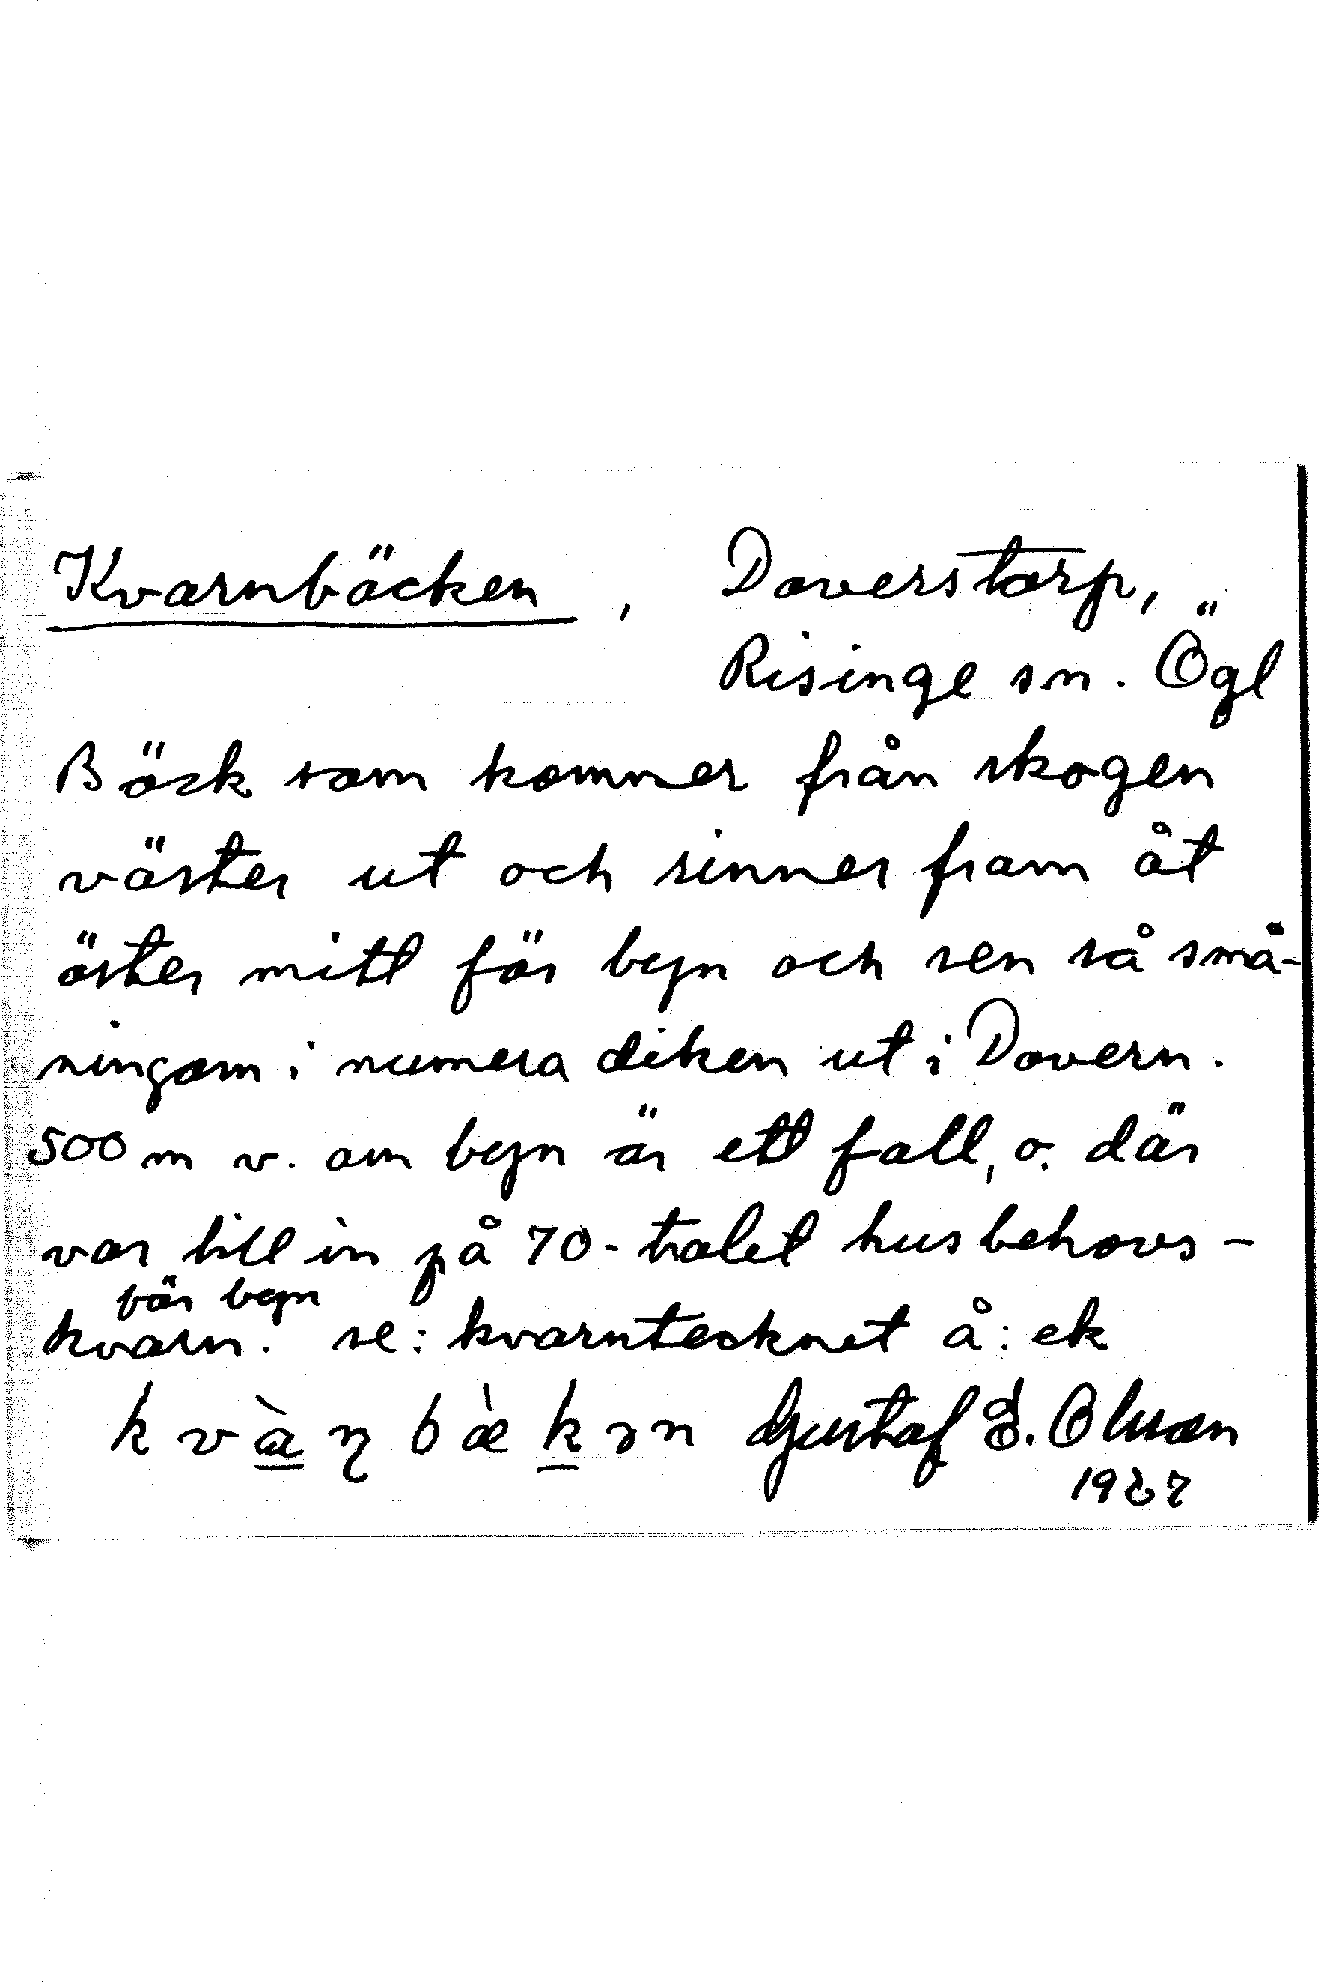 Kvarnbäcken, Doverstorp,
Risinge sn. Ögl
Bäck som kommer från skogen
väster ut och rinner fram åt
öster mitt för byn och sen så små-
ningom i numera diken ut i Dovern.
500 m v. om byn är ett fall, o. där
var till in på 70-talet husbehovs-
för byn
kvarn. se: kvarntecknet å: ek
kvàɳbækən Gustaf E. Olsson